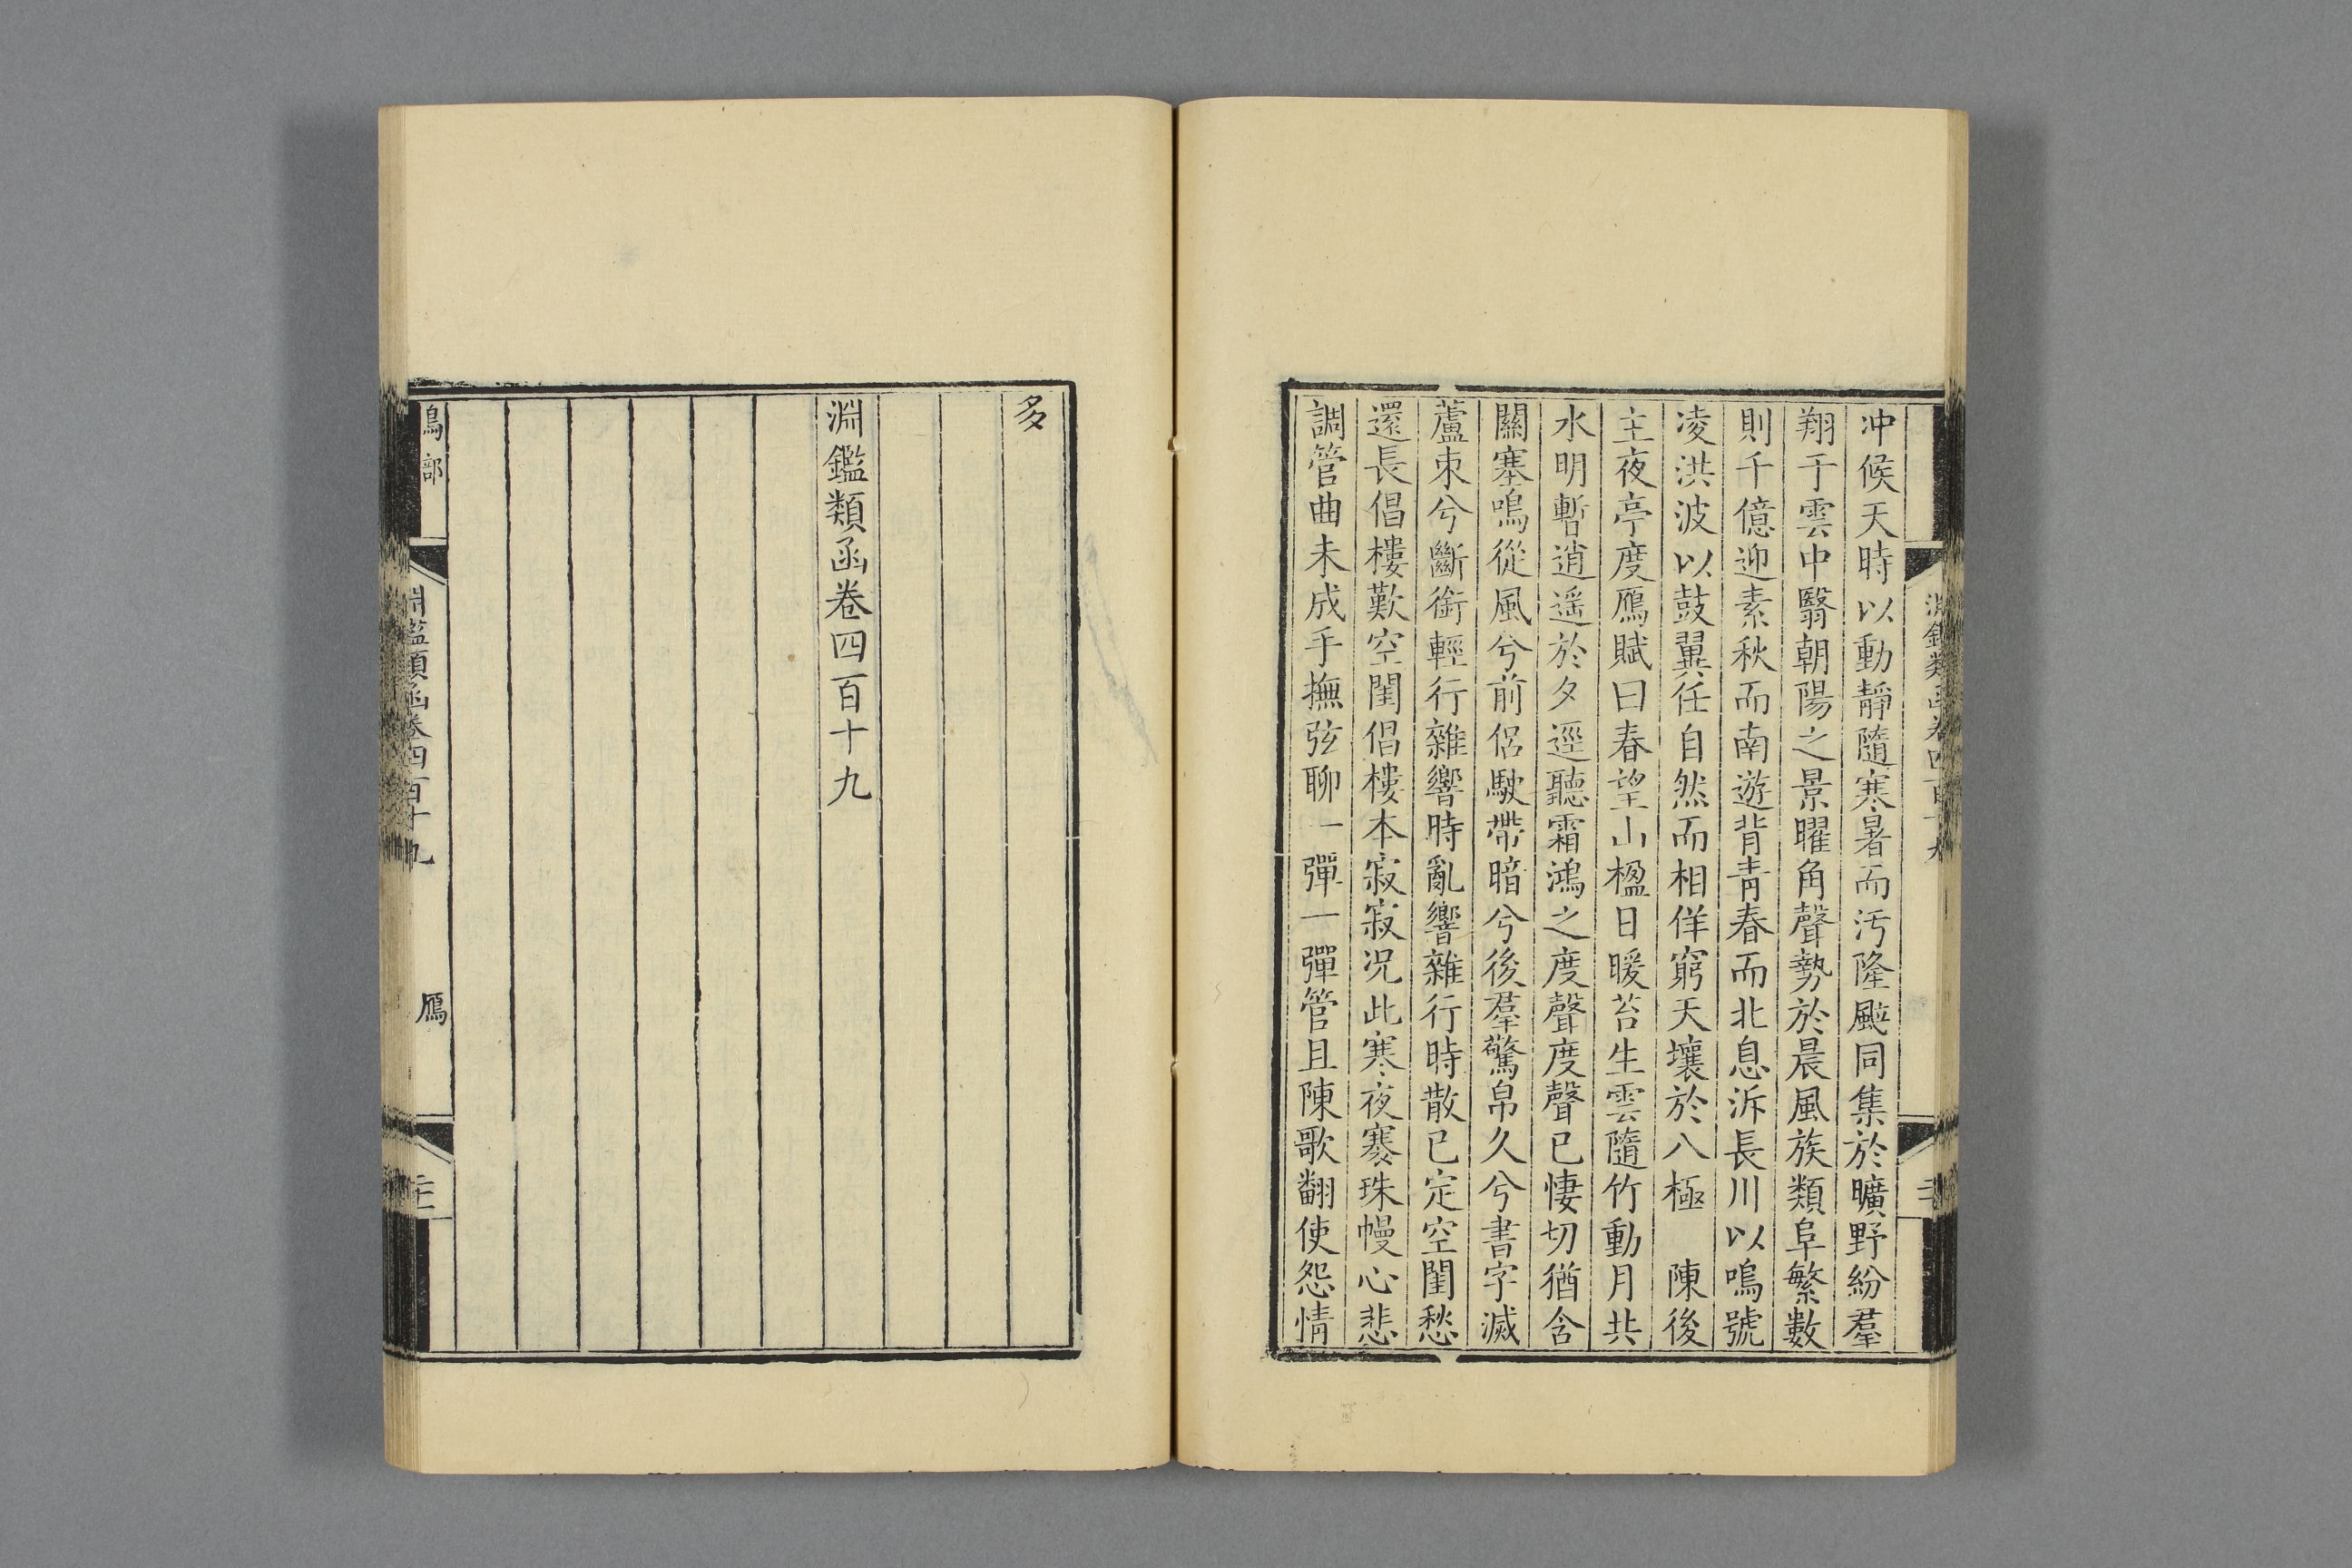 冲候天時以動靜隨寒暑而汚隆颷同集於曠野紛羣
翔于雲中翳朝陽之景曜角聲勢於晨風族類阜繁數
則千億迎素秋而南遊背青春而北息泝長川以鳴號
凌洪波以鼓翼任自然而相佯窮天壤於八極　陳後
主夜亭度鴈賦曰春望山楹日暖苔生雲隨竹動月共
水明暫逍遥於夕逕聽霜鴻之度聲度聲已悽切猶含
關塞鳴從風兮前侶駛帶暗兮後羣驚帛久兮書字滅
蘆束兮斷銜輕行雜響時亂響雜行時散已定空閨愁
還長倡樓歎空閨倡樓本寂寂况此寒夜褰珠幔心悲
調管曲未成手撫弦聊一彈一彈管且陳歌翻使怨情
多
淵鑑類函卷四百十九
鳥部
淵鑑類函卷四百十九
鴈